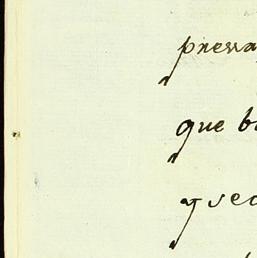 pressa
que b
y sec